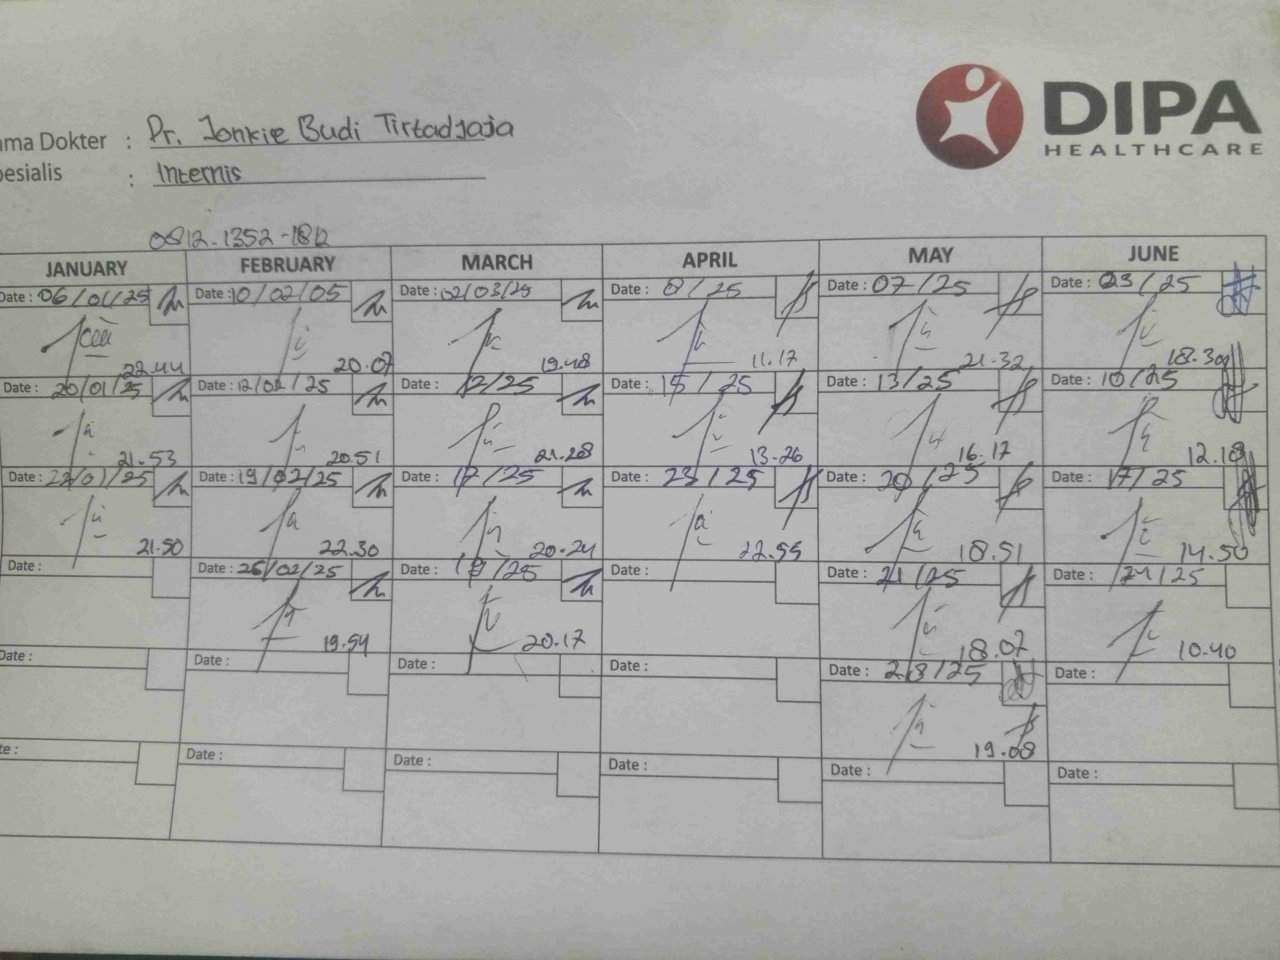 DIPA
HEALTHCARE
ama Dokter : Dr. Jonkie Budi Tirtadjaja
pesialis : Internis
0812-1352-1812
JANUARY FEBRUARY MARCH APRIL MAY JUNE
Date : 06/01/25 Date : 10/02/05 Date : 02/03/25 Date : 8/25 Date : 07/25 Date : 03/25
22.44 20.07 19.48 11.17 21.32 18.30
Date : 20/01/25 Date : 12/02/25 Date : 12/25 Date : 15/25 Date : 13/25 Date : 10/25
21.53 20.51 21.28 13.26 16.17 12.18
Date : 22/01/25 Date : 19/02/25 Date : 17/25 Date : 23/25 Date : 20/25 Date : 17/25
21.50 22.30 20.24 22.55 18.51 14.50
Date : Date : 26/02/25 Date : 19/25 Date : Date : 21/25 Date : 24/25
19.54 20.17 18.07 10.40
Date : Date : Date : Date : Date : 28/25 Date :
19.08
te : Date : Date : Date : Date : Date :